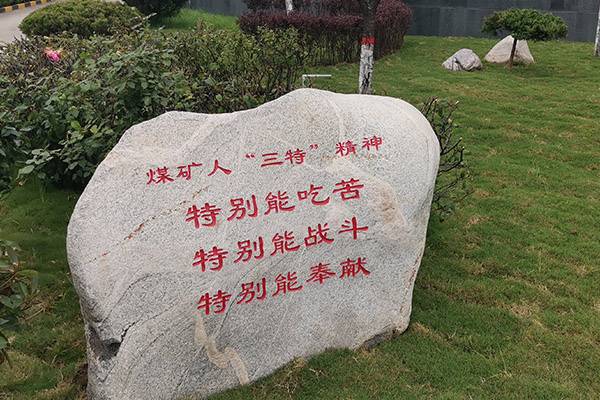 煤矿人“三特”精神
特别能吃苦
特别能战斗
特别能奉献